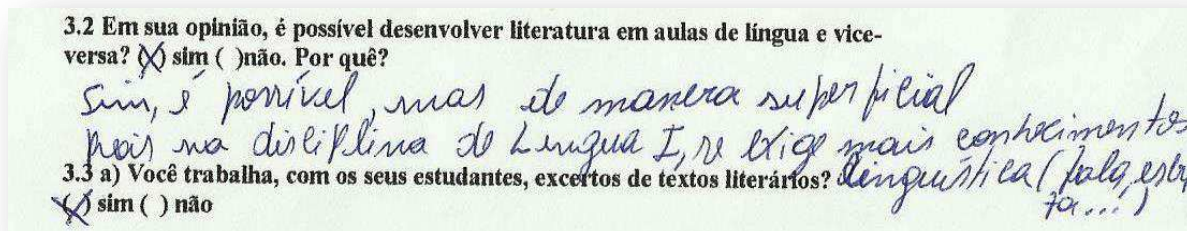 3.2 Em sua opinião, é possível desenvolver literatura em aulas de língua e vice-
versa? (X) sim ( )não. Por quê?
Sim, é possível, mas de manera superficial
pois na disciplina de Lengua I, se exige mais conhecimentos
linguística (fala, escri
ta...)
3.3 a) Você trabalha, com os seus estudantes, excertos de textos literários?
(X) sim ( ) não